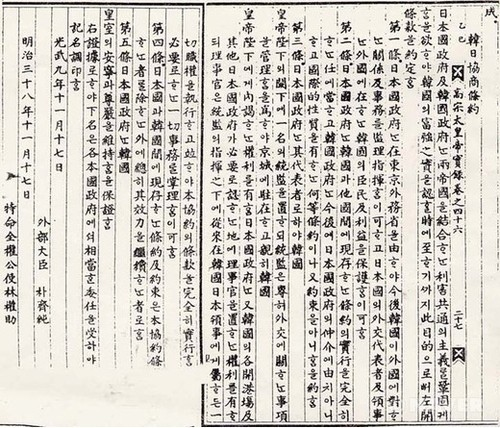 韓日協商條約
日本國政府及韓國政府ᄂᆞᆫ兩帝國을結合ᄒᆞᄂᆞᆫ利害共通의主義를鞏固케
ᄒᆞᆷ을欲ᄒᆞ야韓國의富强의實을認ᄒᆞᆯ時에至ᄒᆞ기ᄭᆞ지此目的으로ᄡᅥ左開
條款을約定ᄒᆞᆷ
第一條日本國政府ᄂᆞᆫ在東京外務省을由ᄒᆞ야今後韓國이外國에對ᄒᆞ
ᄂᆞᆫ關係及事務를監理指揮ᄒᆞᆷ이可ᄒᆞ고日本國의外交代表者及領事
ᄂᆞᆫ外國에在ᄒᆞᄂᆞᆫ韓國의臣民及利益을保護ᄒᆞᆷ이可ᄒᆞᆷ
第二條日本國政府ᄂᆞᆫ韓國과他國間에現存ᄒᆞᄂᆞᆫ條約의實行을完全히
ᄒᆞᄂᆞᆫ任에當ᄒᆞ고韓國政府ᄂᆞᆫ今後에日本國政府의仲介에由치아니
ᄒᆞ고國際的性質을有ᄒᆞᄂᆞᆫ何等條約이나又約束을아니ᄒᆞᆷ을約ᄒᆞᆷ
第三條日本國政府ᄂᆞᆫ其代表者로ᄒᆞ야韓國
皇帝陛下의闕下에一名의統監을置ᄒᆞ되統監은專혀外交에關ᄒᆞᄂᆞᆫ事項
을管理ᄒᆞᆷ을爲ᄒᆞ야京城에駐在ᄒᆞ고親히韓國
皇帝陛下에게內謁ᄒᆞᄂᆞᆫ權利를有ᄒᆞᆷ日本國政府ᄂᆞᆫ又韓國의各開港場及
其他日本國政府가必要로認ᄒᆞᄂᆞᆫ地에理事官을置ᄒᆞᄂᆞᆫ權利를有ᄒᆞ
되理事官은統監의指揮之下에從來在韓國日本領事에게屬ᄒᆞ든一
乙巳 高宗太皇帝實錄卷之四十六 二十七
切職權을執行ᄒᆞ고並ᄒᆞ야本協約의條款을完全히實行ᄒᆞᆷ을
必要로ᄒᆞᄂᆞᆫ一切事務를掌理ᄒᆞᆷ이可ᄒᆞᆷ
第四條日本國과韓國間에現存ᄒᆞᄂᆞᆫ條約及約束은本協約條
ᄒᆞᄂᆞᆫ者를除ᄒᆞᄂᆞᆫ外에總히其效力을繼續ᄒᆞᄂᆞᆫ者로ᄒᆞᆷ
第五條日本國政府ᄂᆞᆫ韓國
皇室의安寧과尊嚴을維持ᄒᆞᆷ을保證ᄒᆞᆷ
右證據로ᄒᆞ야下名은各本國政府에셔相當ᄒᆞᆫ委任을受ᄒᆞ야
記名調印ᄒᆞᆷ
光武九年十一月十七日
外部大臣 朴齊純
明治三十八年十一月十七日
特命全權公使林權助